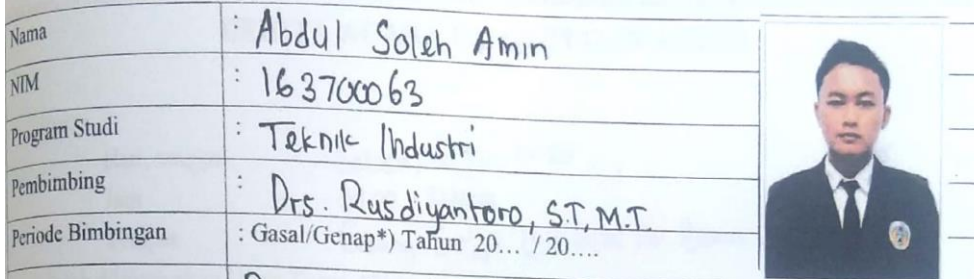 Nama : Abdul Soleh Amin
NIM : 163700063
Program Studi : Teknik Industri
Pembimbing : Drs. Rusdiyantoro, S.T, M.T.
Periode Bimbingan : Gasal/Genap*) Tahun 20... / 20....